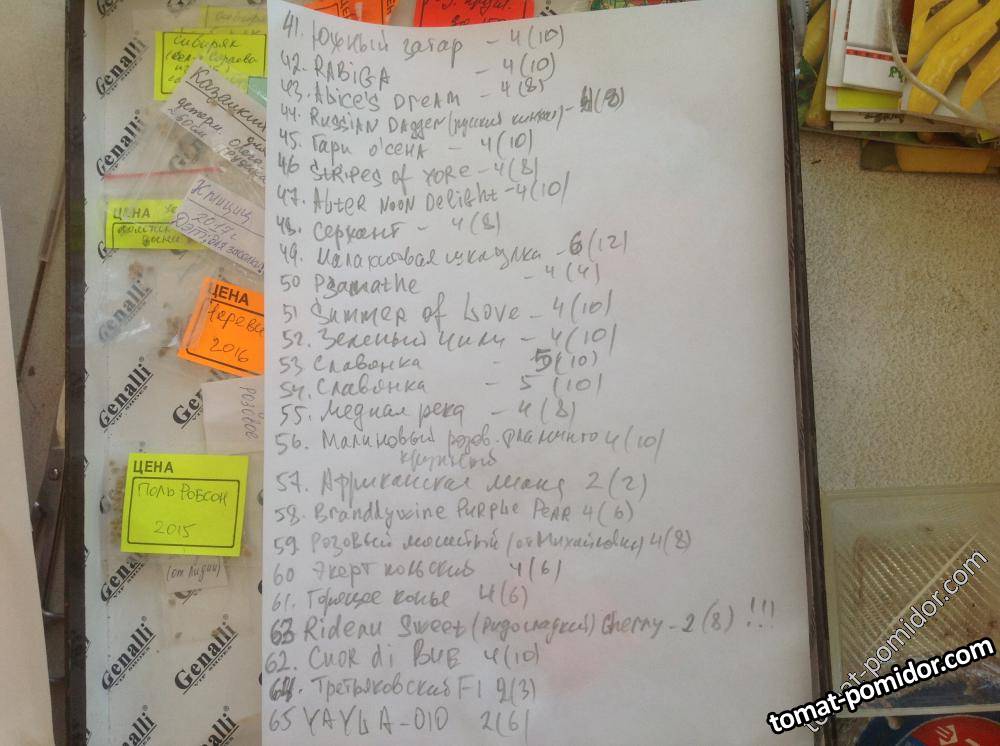 41. Южный загар - 4(10)
42. RABiGA - 4(10)
43. Alice's DREAM - 4(8)
44. RUSSIAN DAGGER (русский кинжал) - 4(8)
45. Гари О'Сена - 4(10)
46 StRipes of YORE - 4(8)
47. AfteR NOON Delight - 4(10)
48. Сержант - 4(8)
49. Малахитовая шкатулка - 6(12)
50 Psamathe - 4(4)
51 Summer of Love - 4(10)
52. Зеленый - 4(10)
53 Славянка - 5(10)
54. Славянка - 5(10)
55. Медная река - 4(8)
56. Малиновый розов. фламинго 4(10)
крупный
57. Африканская лиана 2(2)
58. Brandywine PURPLE PEAR 4(6)
59 Розовый мясистый (от Михайловны) 4(8)
60 Экерт кольский 4(6)
61. Горящее копье 4(6)
63 Rideau Sweet (ридо сладкий) Cherry - 2(8) !!!
62. Cuor di BUE 4(10)
64. Третьяковский F1 2(3)
65 YAYLA-010 2(6)
Сибиряк
Казацкий
ЦЕНА
2017
ЦЕНА
2016
розовое
ЦЕНА
Поль Робсон
2015
(от Лидии)
Genalli
Genalli
Genalli
Genalli
Genalli
Genalli
Genalli
tomat-pomidor.com
tomat-pomidor.com